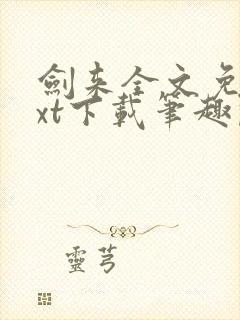 劍来全文免
xt下載筆趣
靈芎